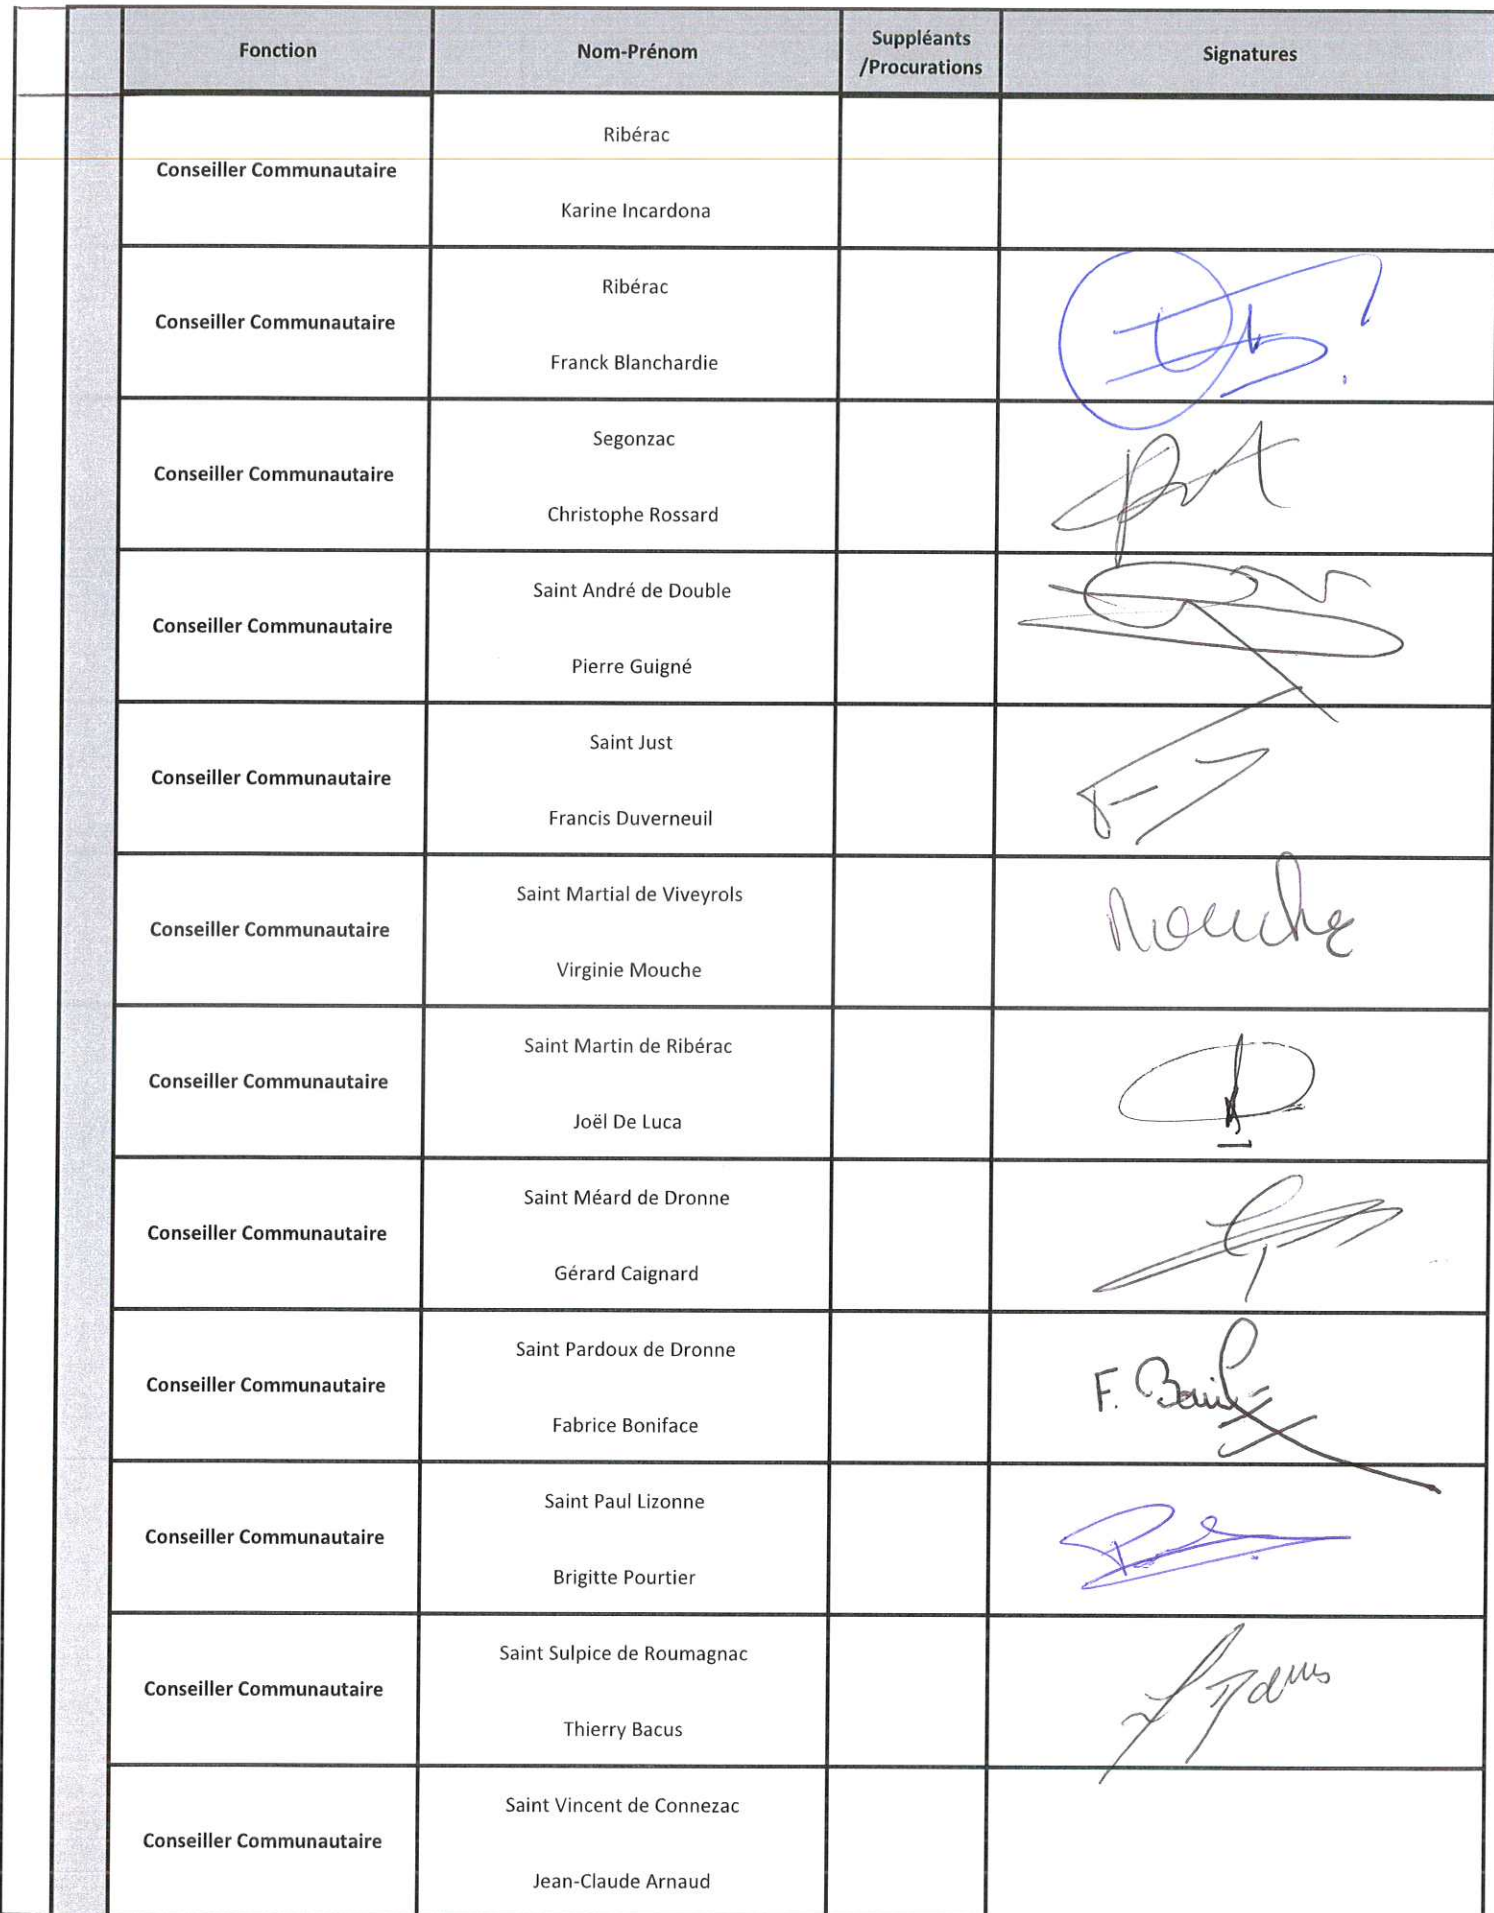 Fonction Nom-Prénom Suppléants /Procurations Signatures
Conseiller Communautaire
Ribérac
Karine Incardona
Conseiller Communautaire
Ribérac
Franck Blanchardie
Conseiller Communautaire
Segonzac
Christophe Rossard
Conseiller Communautaire
Saint André de Double
Pierre Guigné
Conseiller Communautaire
Saint Just
Francis Duverneuil
Conseiller Communautaire
Saint Martial de Viveyrols
Virginie Mouche
Mouche
Conseiller Communautaire
Saint Martin de Ribérac
Joël De Luca
Conseiller Communautaire
Saint Méard de Dronne
Gérard Caignard
Conseiller Communautaire
Saint Pardoux de Dronne
Fabrice Boniface
F.
Conseiller Communautaire
Saint Paul Lizonne
Brigitte Pourtier
Conseiller Communautaire
Saint Sulpice de Roumagnac
Thierry Bacus
Conseiller Communautaire
Saint Vincent de Connezac
Jean-Claude Arnaud